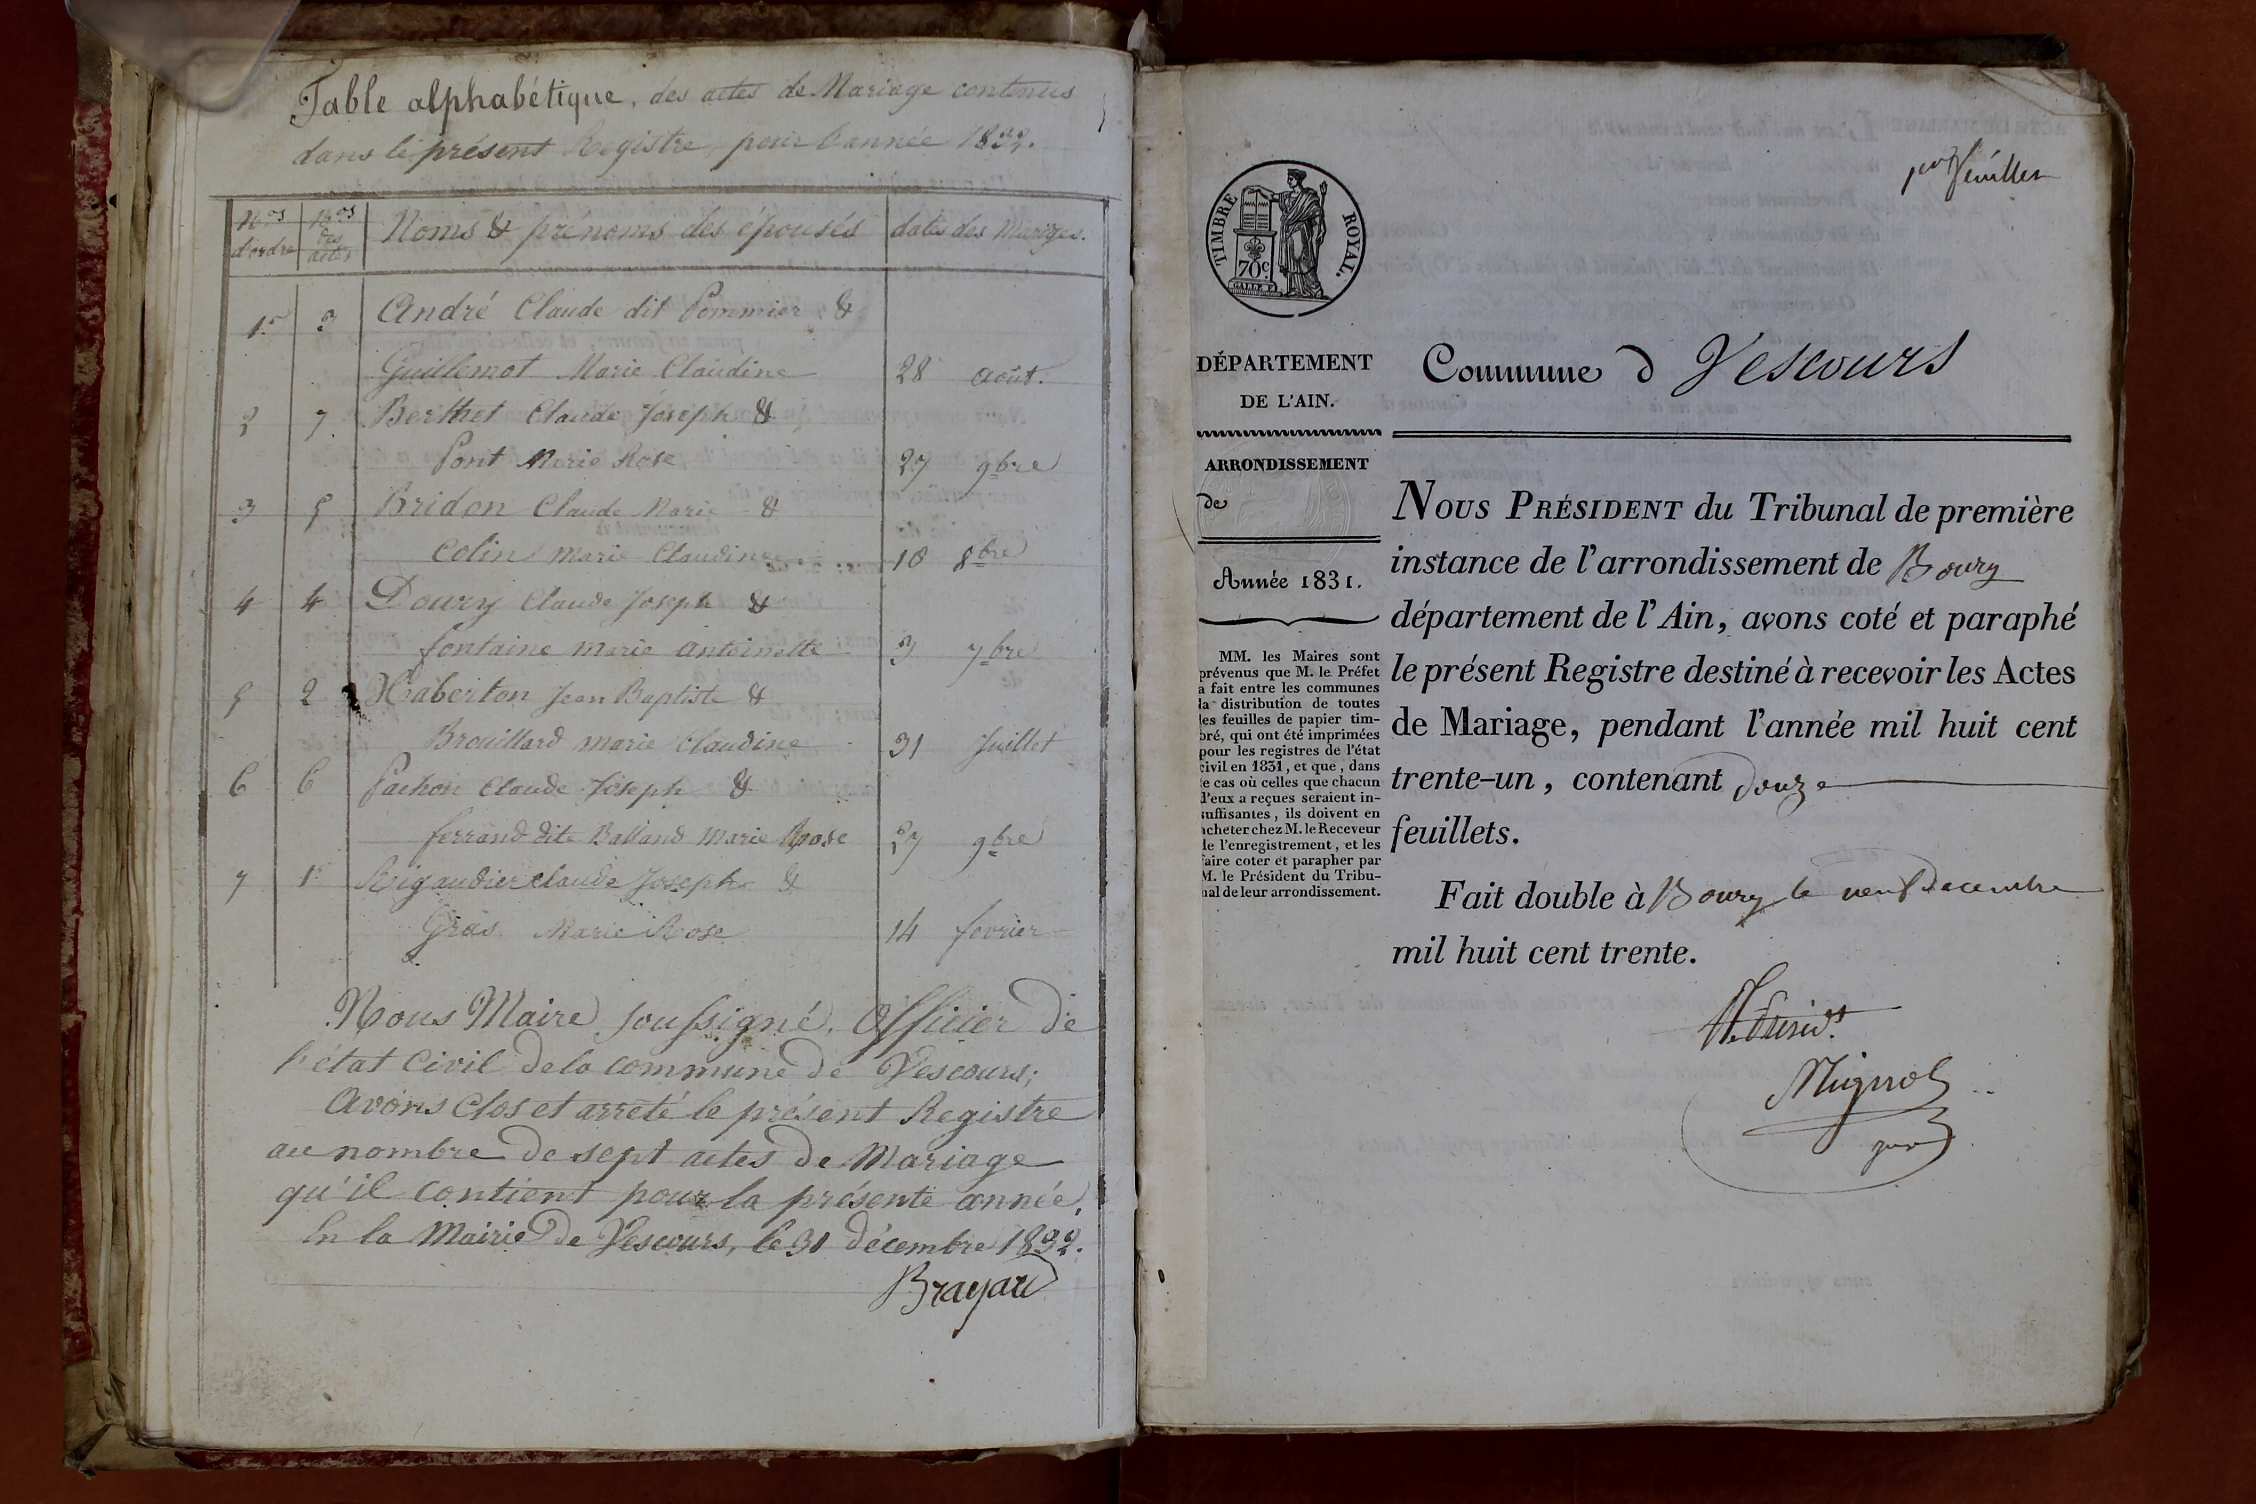 Table alphabétique, des actes de Mariage contenus
dans le présent Registre, pour l'année 1832.
Nos d'ordre
Nos des actes
Noms & prénoms des épousés
dates des Mariages.
1er 3 André Claude dit Pommier &
Guillemot Marie Claudine 28 août.
2 7 Berthet Claude Joseph &
Pont Marie Rose 27 9bre
3 5 Bridon Claude Marie &
Colin Marie Claudine 18 8bre
4 4 Doury Claude Joseph &
fontaine marie antoinette 3 7bre
5 2 Haberton Jean Baptiste &
Brouillard marie Claudine 31 Juillet
6 6 Pachon Claude Joseph &
ferrand dite Balland Marie Rose 27 9bre
7 1er Rigaudier Claude Joseph &
Gras Marie Rose 14 fevrier
Nous Maire soussigné, Officier de
l'état Civil de la commune de Vescours;
Avons Clos et arreté le présent Registre
au nombre de sept actes de Mariage
qu'il contient pour la présente année.
En la Mairie de Vescours, le 31 décembre 1832.
Brayard
1er feuillet
TIMBRE ROYAL.
70c.
DÉPARTEMENT
DE L'AIN.
Commune d Vescours
ARRONDISSEMENT
de
Année 1831.
MM. les Maires sont
prévenus que M. le Préfet
a fait entre les communes
la distribution de toutes
les feuilles de papier tim-
bré, qui ont été imprimées
pour les registres de l'état
civil en 1831, et que, dans
le cas où celles que chacun
d'eux a reçues seraient in-
suffisantes, ils doivent en
acheter chez M. le Receveur
de l'enregistrement, et les
faire coter et parapher par
M. le Président du Tribu-
nal de leur arrondissement.
NOUS PRÉSIDENT du Tribunal de première
instance de l'arrondissement de Bourg
département de l'Ain, avons coté et paraphé
le présent Registre destiné à recevoir les Actes
de Mariage, pendant l'année mil huit cent
trente-un, contenant douze
feuillets.
Fait double à Bourg le neuf décembre
mil huit cent trente.
Mignot